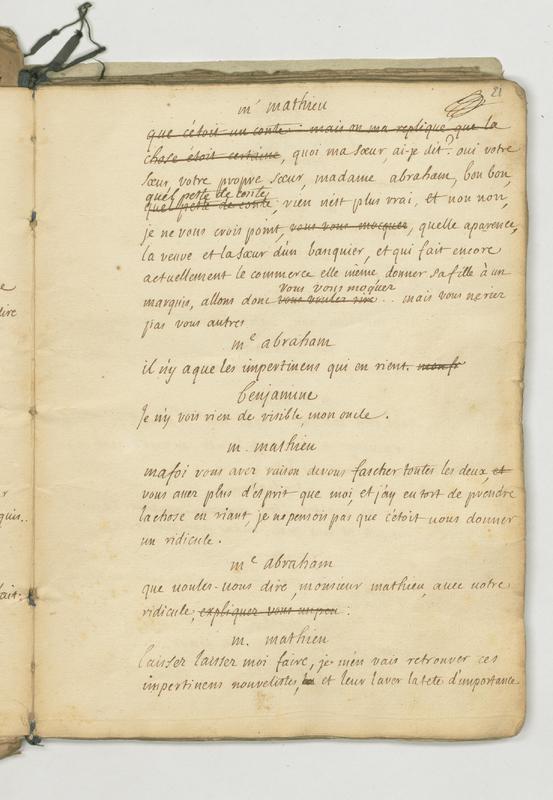 21
mr mathieu
que c'étoit un conte : mais on ma repliqué que la
chose étoit certaine, quoi ma sœur, ai-je dit? oui votre
sœur, votre propre sœur, madame abraham, bon bon,
quel peste de conte
quel peste de conte, rien n'est plus vrai, et non non,
je ne vous crois point, vous vous mocquez, quelle aparence,
la veuve et la sœur d'un banquier, et qui fait encore
actuellement le commerce elle même, donner sa fille à un
vous vous moquez
marquis, allons donc vous voulez rire .. mais vous ne riez
pas vous autres
me abraham
il n'y a que les impertinens qui en rient. mon fr
benjamine
Je n'y vois rien de visible, mon oncle.
m. mathieu
mafoi vous avez raison de vous fascher toutes les deux, et
vous avez plus d'esprit que moi, et j'ay eu tort de prendre
la chose en riant, je ne pensois pas que c'étoit vous donner
un ridicule.
me abraham
que voulez-vous dire, monsieur mathieu, avec votre
ridicule, expliquez vous un peu :
m. mathieu
laissez laissez moi faire, je m'en vais retrouver ces
impertinens nouvelistes, et leur laver la tete d'importance